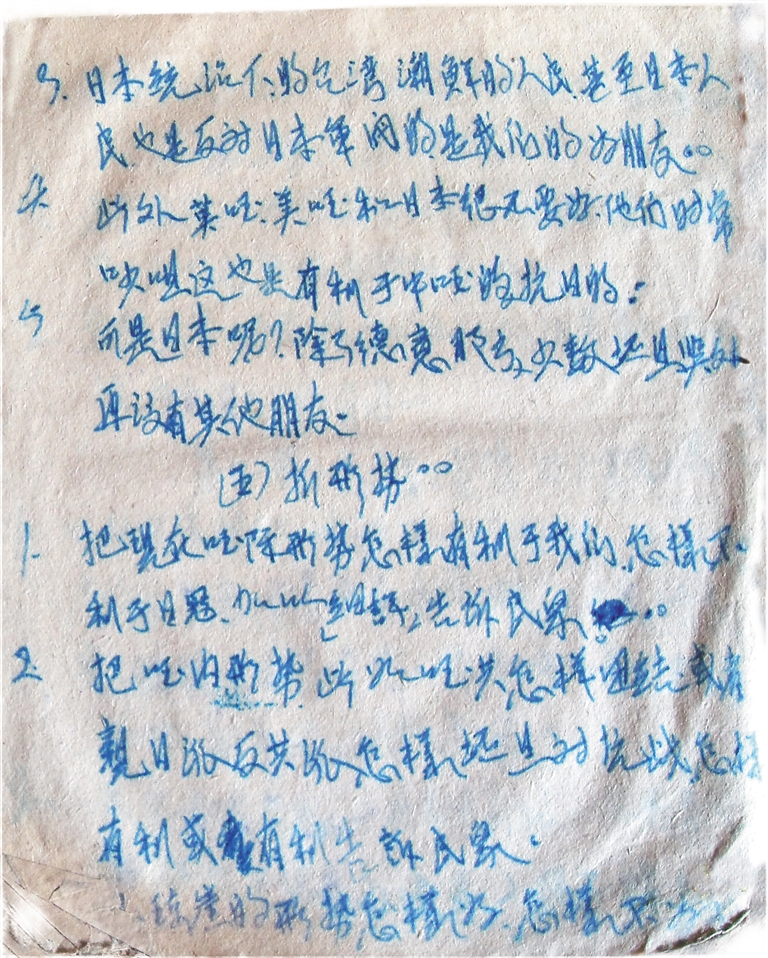 3. 日本統治下的台湾潮鮮的人民甚至日本人
民也是反对日本軍阀的是我们的好朋友。
4. 此外英国、美国和日本很不要好、他们时常
吵咀这也是有利于中国的抗日的:
5 可是日本呢?除了德、意 少数 外
再没有其他朋友。
(五)折形势。
1. 把現在国际形势怎样有利于我们、怎样不
利于日冦、加以 告訴民众。
2. 把国内形势 此如国共怎样团结或者
親日派反共派怎样 对抗战怎样
有利或 有利告訴民众。
的形势怎样好、怎样不